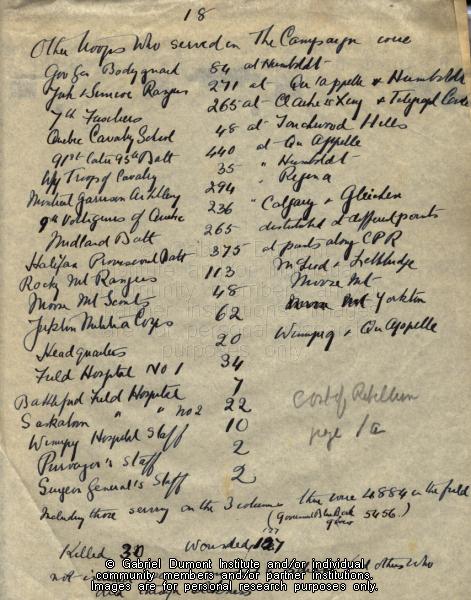 18
Other troops who served in The Campaign were
Gov Gen Bodyguard 84 at Humboldt
York & Simcoe Rangers 271 at Qu'appelle & Humboldt
7th Fusiliers 265 at Clarke's Xing & Telegraph
Quebec Cavalry School 48 at Touchwood Hills
91st Late 95th Batt 440 at Qu Appelle
Wpg Troop of Cavalry 35 " Humboldt
Montreal Garrison Artillery 294 " Regina
9th Voltigeurs of Quebec 236 " Calgary & Gleichen
Midland Batt 265 distributed at different points
Halifax Provisional Batt 375 at points along CPR
Rocky Mt Rangers 113 McLeod & Lethbridge
Moose Mt Scouts 48 Moose Mt
Yorkton Militia Corps 62 Yorkton
Headquarters 20 Winnipeg & Qu Appelle
Field Hospital No 1 34
Battleford Field Hospital 7
Saskatoon " " No 2 22
Winnipeg Hospital Staff 10
Purveyor's Staff 2
Surgeon General's Staff 2
Cost of Rebellion
page 1a
Including those serving on the 3 columns there were 4884 in the field
(Government Blue Book gives 5456.)
Killed 30 Wounded 127
not others who
© Gabriel Dumont Institute and/or individual
community members and/or partner institutions.
Images are for personal research purposes only.